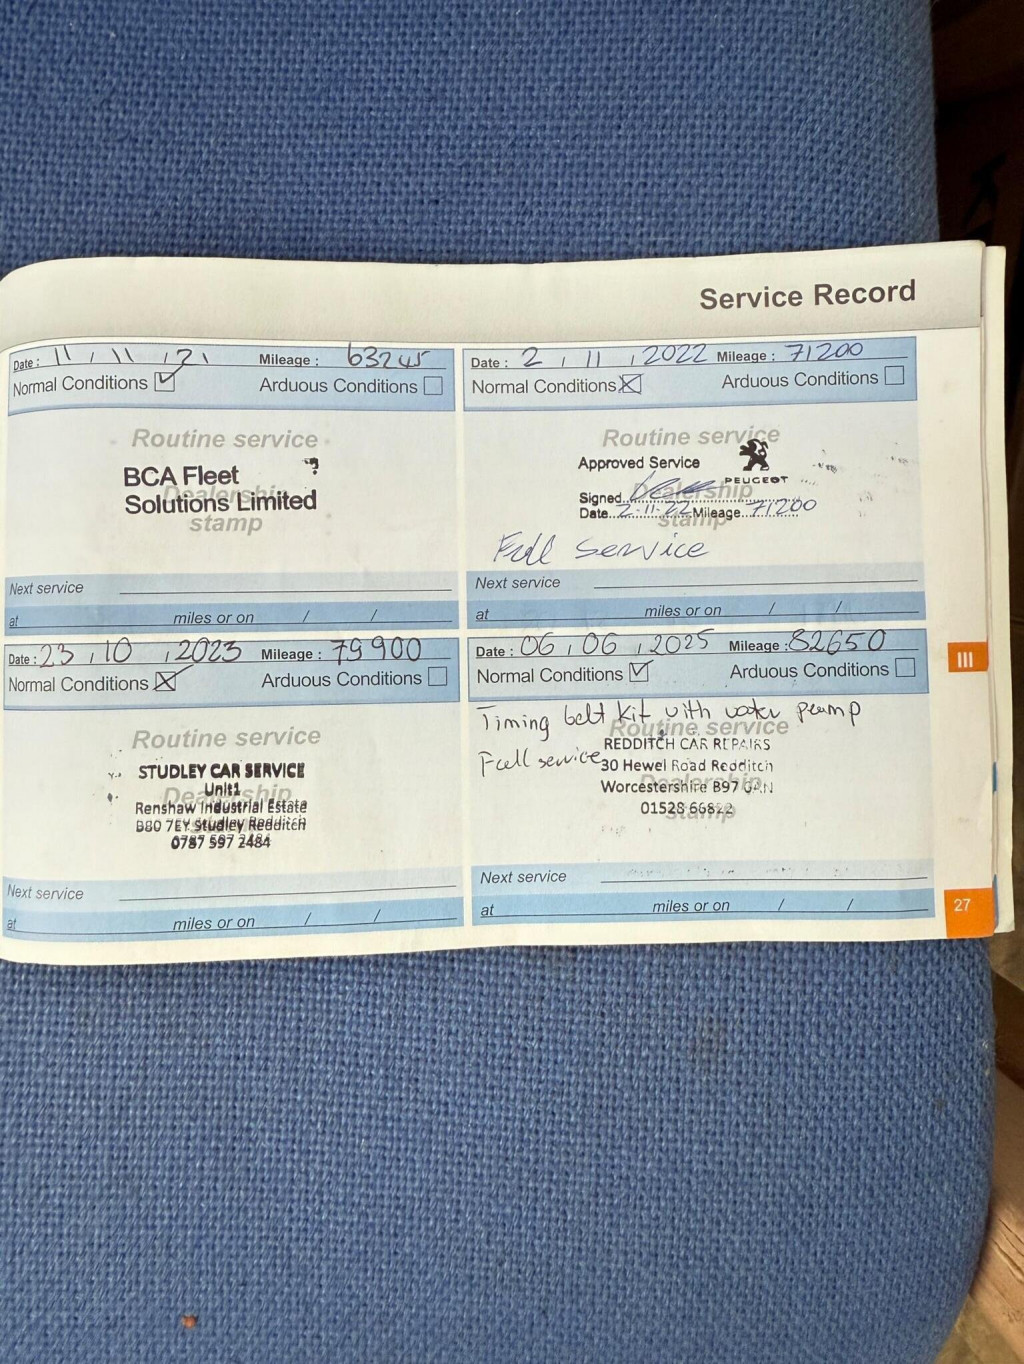 Service Record
Date: 11 / 11 / 21 Mileage: 63245
Normal Conditions Arduous Conditions
Routine service
BCA Fleet
Solutions Limited
Dealership
stamp
Next service
at miles or on / /
Date: 2 / 11 / 2022 Mileage: 71200
Normal Conditions Arduous Conditions
Routine service
Approved Service
PEUGEOT
Dealership
Signed
Date 2-11-22 Mileage 71200
stamp
Full Service
Next service
at miles or on / /
Date: 23 / 10 / 2023 Mileage: 79900
Normal Conditions Arduous Conditions
Routine service
STUDLEY CAR SERVICE
Unit1
Dealership
Renshaw Industrial Estate
B80 7EY Studley Redditch
stamp
0787 597 2484
Next service
at miles or on / /
Date: 06 / 06 / 2025 Mileage: 82650
Normal Conditions Arduous Conditions
Timing belt kit with water pump
Routine service
Full service
REDDITCH CAR REPAIRS
30 Hewel Road Redditch
Dealership
Worcestershire B97
01528
stamp
Next service
at miles or on / /
III
27